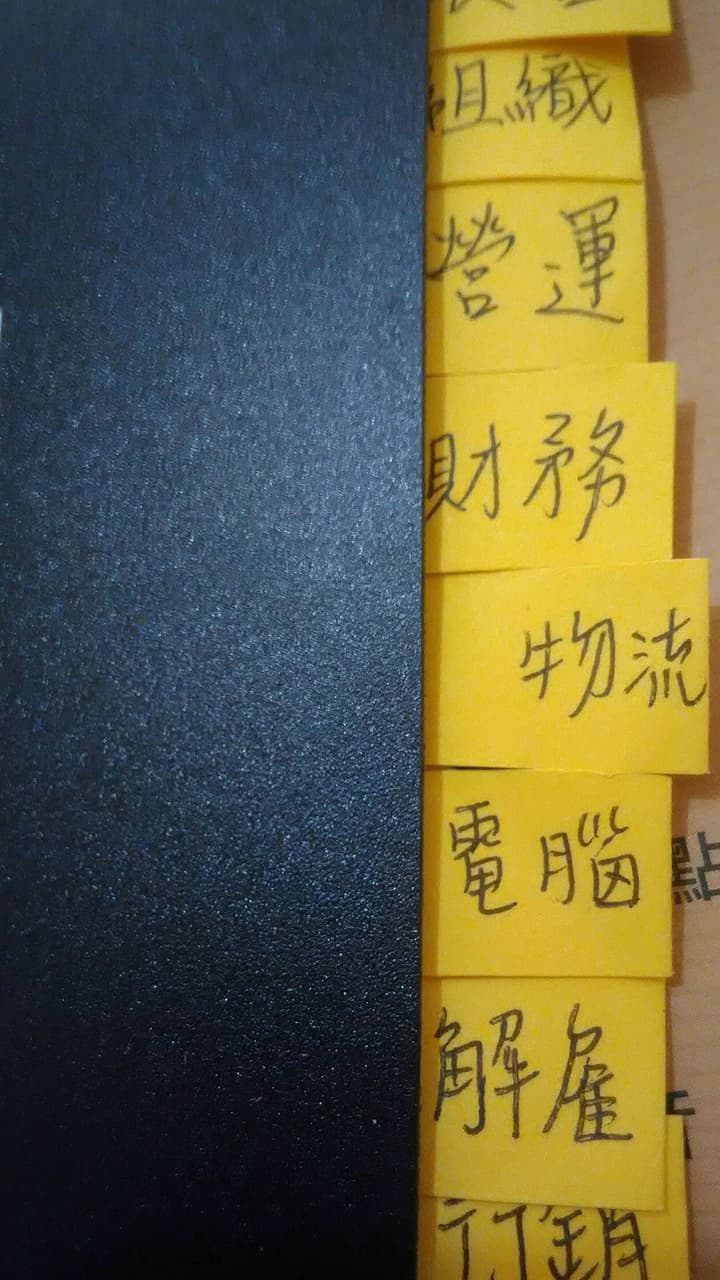 組織
營運
財務
物流
電腦
點
解雇
行銷